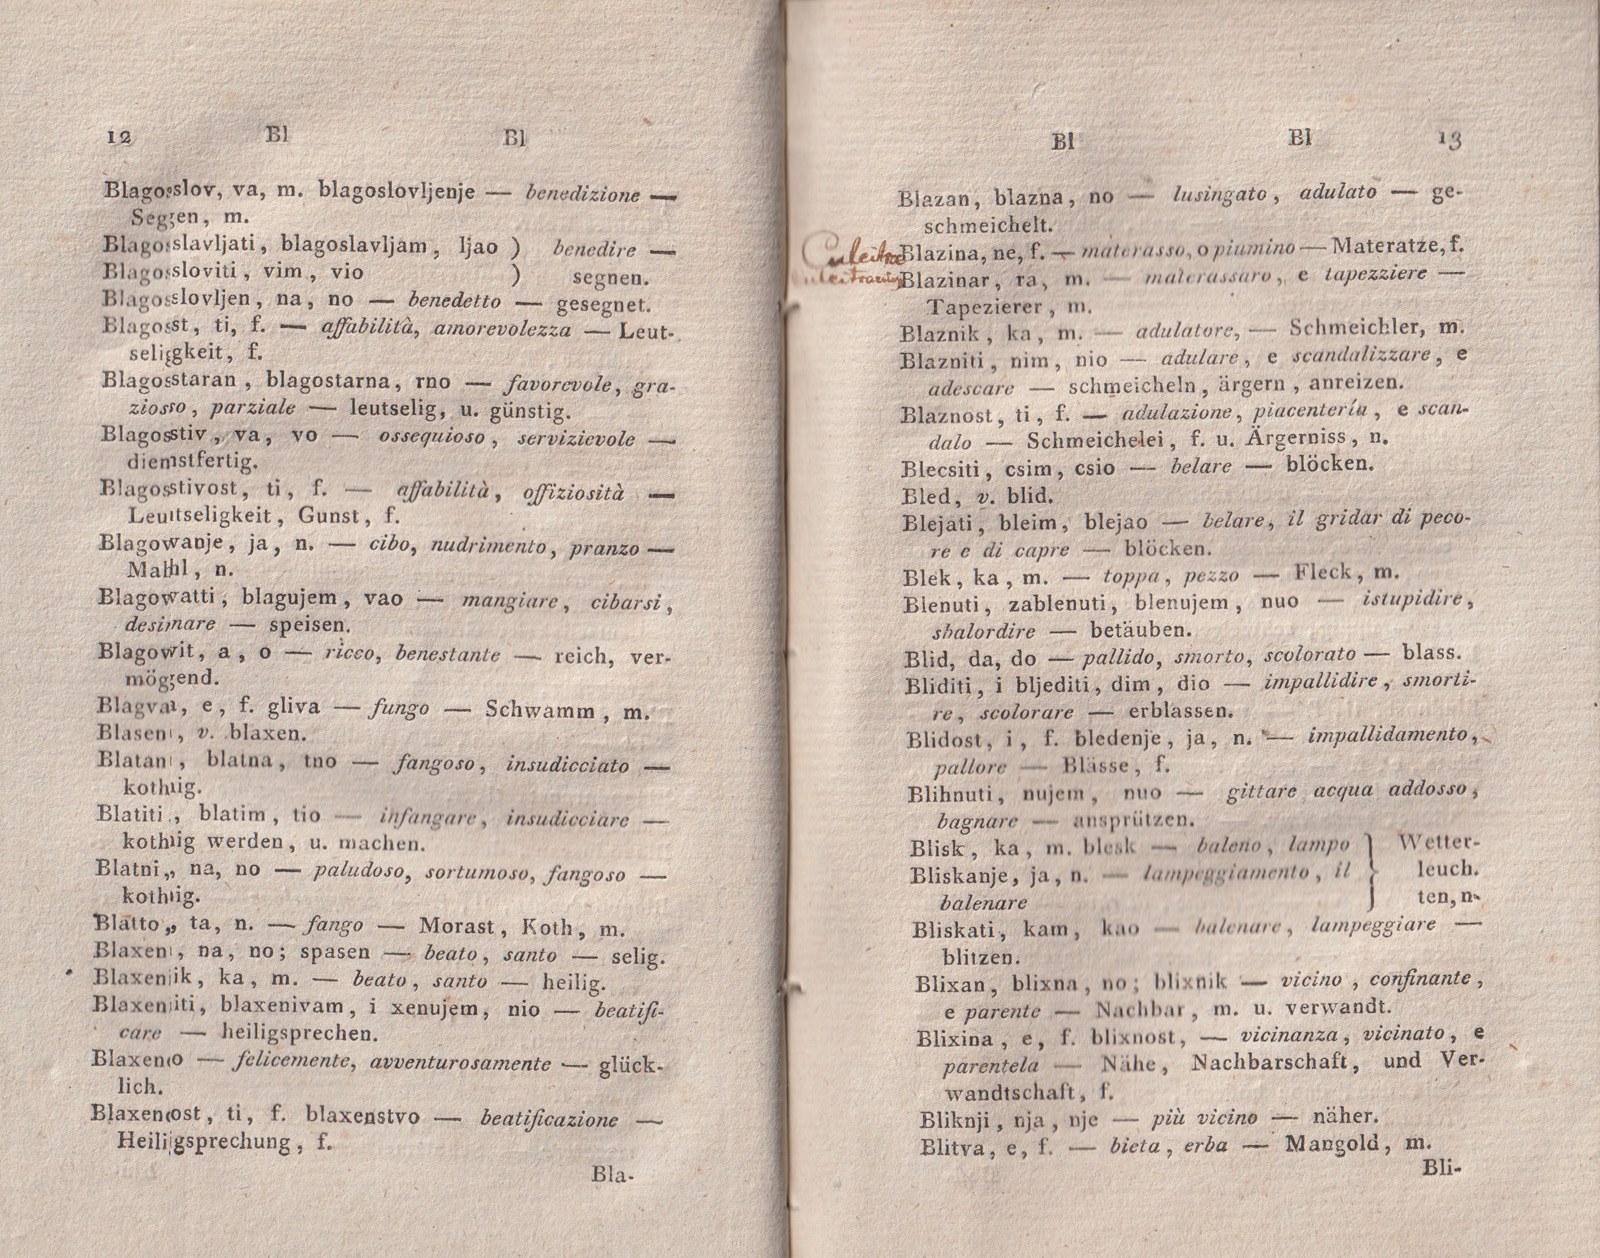 12 Bl Bl
Blagoslov, va, m. blagoslovljenje — benedizione —
Segen, m.
Blagoslavljati, blagoslavljam, ljao ) benedire —
Blagosloviti, vim, vio ) segnen.
Blagoslovljen, na, no — benedetto — gesegnet.
Blagost, ti, f. — affabilità, amorevolezza — Leut-
seligkeit, f.
Blagostaran, blagostarna, rno — favorevole, gra-
zioso, parziale — leutselig, u. günstig.
Blagostiv, va, vo — ossequioso, servizievole —
dienstfertig.
Blagostivost, ti, f. — affabilità, offiziosità —
Leutseligkeit, Gunst, f.
Blagowanje, ja, n. — cibo, nudrimento, pranzo —
Mahl, n.
Blagowatti, blagujem, vao — mangiare, cibarsi,
desinare — speisen.
Blagowit, a, o — ricco, benestante — reich, ver-
mögend.
Blagva, e, f. gliva — fungo — Schwamm, m.
Blasen, v. blaxen.
Blatan, blatna, tno — fangoso, insudicciato —
kothig.
Blatiti, blatim, tio — infangare, insudicciare —
kothig werden, u. machen.
Blatni, na, no — paludoso, sortumoso, fangoso —
kothig.
Blatto, ta, n. — fango — Morast, Koth, m.
Blaxen, na, no; spasen — beato, santo — selig.
Blaxenik, ka, m. — beato, santo — heilig.
Blaxeniti, blaxenivam, i xenujem, nio — beatifi-
care — heiligsprechen.
Blaxeno — felicemente, avventurosamente — glück-
lich.
Blaxenost, ti, f. blaxenstvo — beatificazione —
Heiligsprechung, f.
Bla-
Bl Bl 13
Blazan, blazna, no — lusingato, adulato — ge-
schmeichelt.
Culcitra Blazina, ne, f. — materasso, o piumino — Materatze, f.
Blazinar, ra, m. — materassaro, e tapezziere —
Tapezierer, m.
Blaznik, ka, m. — adulatore, — Schmeichler, m.
Blazniti, nim, nio — adulare, e scandalizzare, e
adescare — schmeicheln, ärgern, anreizen.
Blaznost, ti, f. — adulazione, piacentería, e scan-
dalo — Schmeichelei, f. u. Ärgerniss, n.
Blecsiti, csim, csio — belare — blöcken.
Bled, v. blid.
Blejati, bleim, blejao — belare, il gridar di peco-
re e di capre — blöcken.
Blek, ka, m. — toppa, pezzo — Fleck, m.
Blenuti, zablenuti, blenujem, nuo — istupidire,
sbalordire — betäuben.
Blid, da, do — pallido, smorto, scolorato — blass.
Bliditi, i bljediti, dim, dio — impallidire, smorti-
re, scolorare — erblassen.
Blidost, i, f. bledenje, ja, n. — impallidamento,
pallore — Blässe, f.
Blihnuti, nujem, nuo — gittare acqua addosso,
bagnare — ansprützen.
Blisk, ka, m. blesk — baleno, lampo } Wetter-
Bliskanje, ja, n. — lampeggiamento, il } leuch.
balenare } ten, n.
Bliskati, kam, kao — balenare, lampeggiare —
blitzen.
Blixan, blixna, no; blixnik — vicino, confinante,
e parente — Nachbar, m. u. verwandt.
Blixina, e, f. blixnost, — vicinanza, vicinato, e
parentela — Nähe, Nachbarschaft, und Ver-
wandtschaft, f.
Bliknji, nja, nje — più vicino — näher.
Blitva, e, f. — bieta, erba — Mangold, m.
Bli-